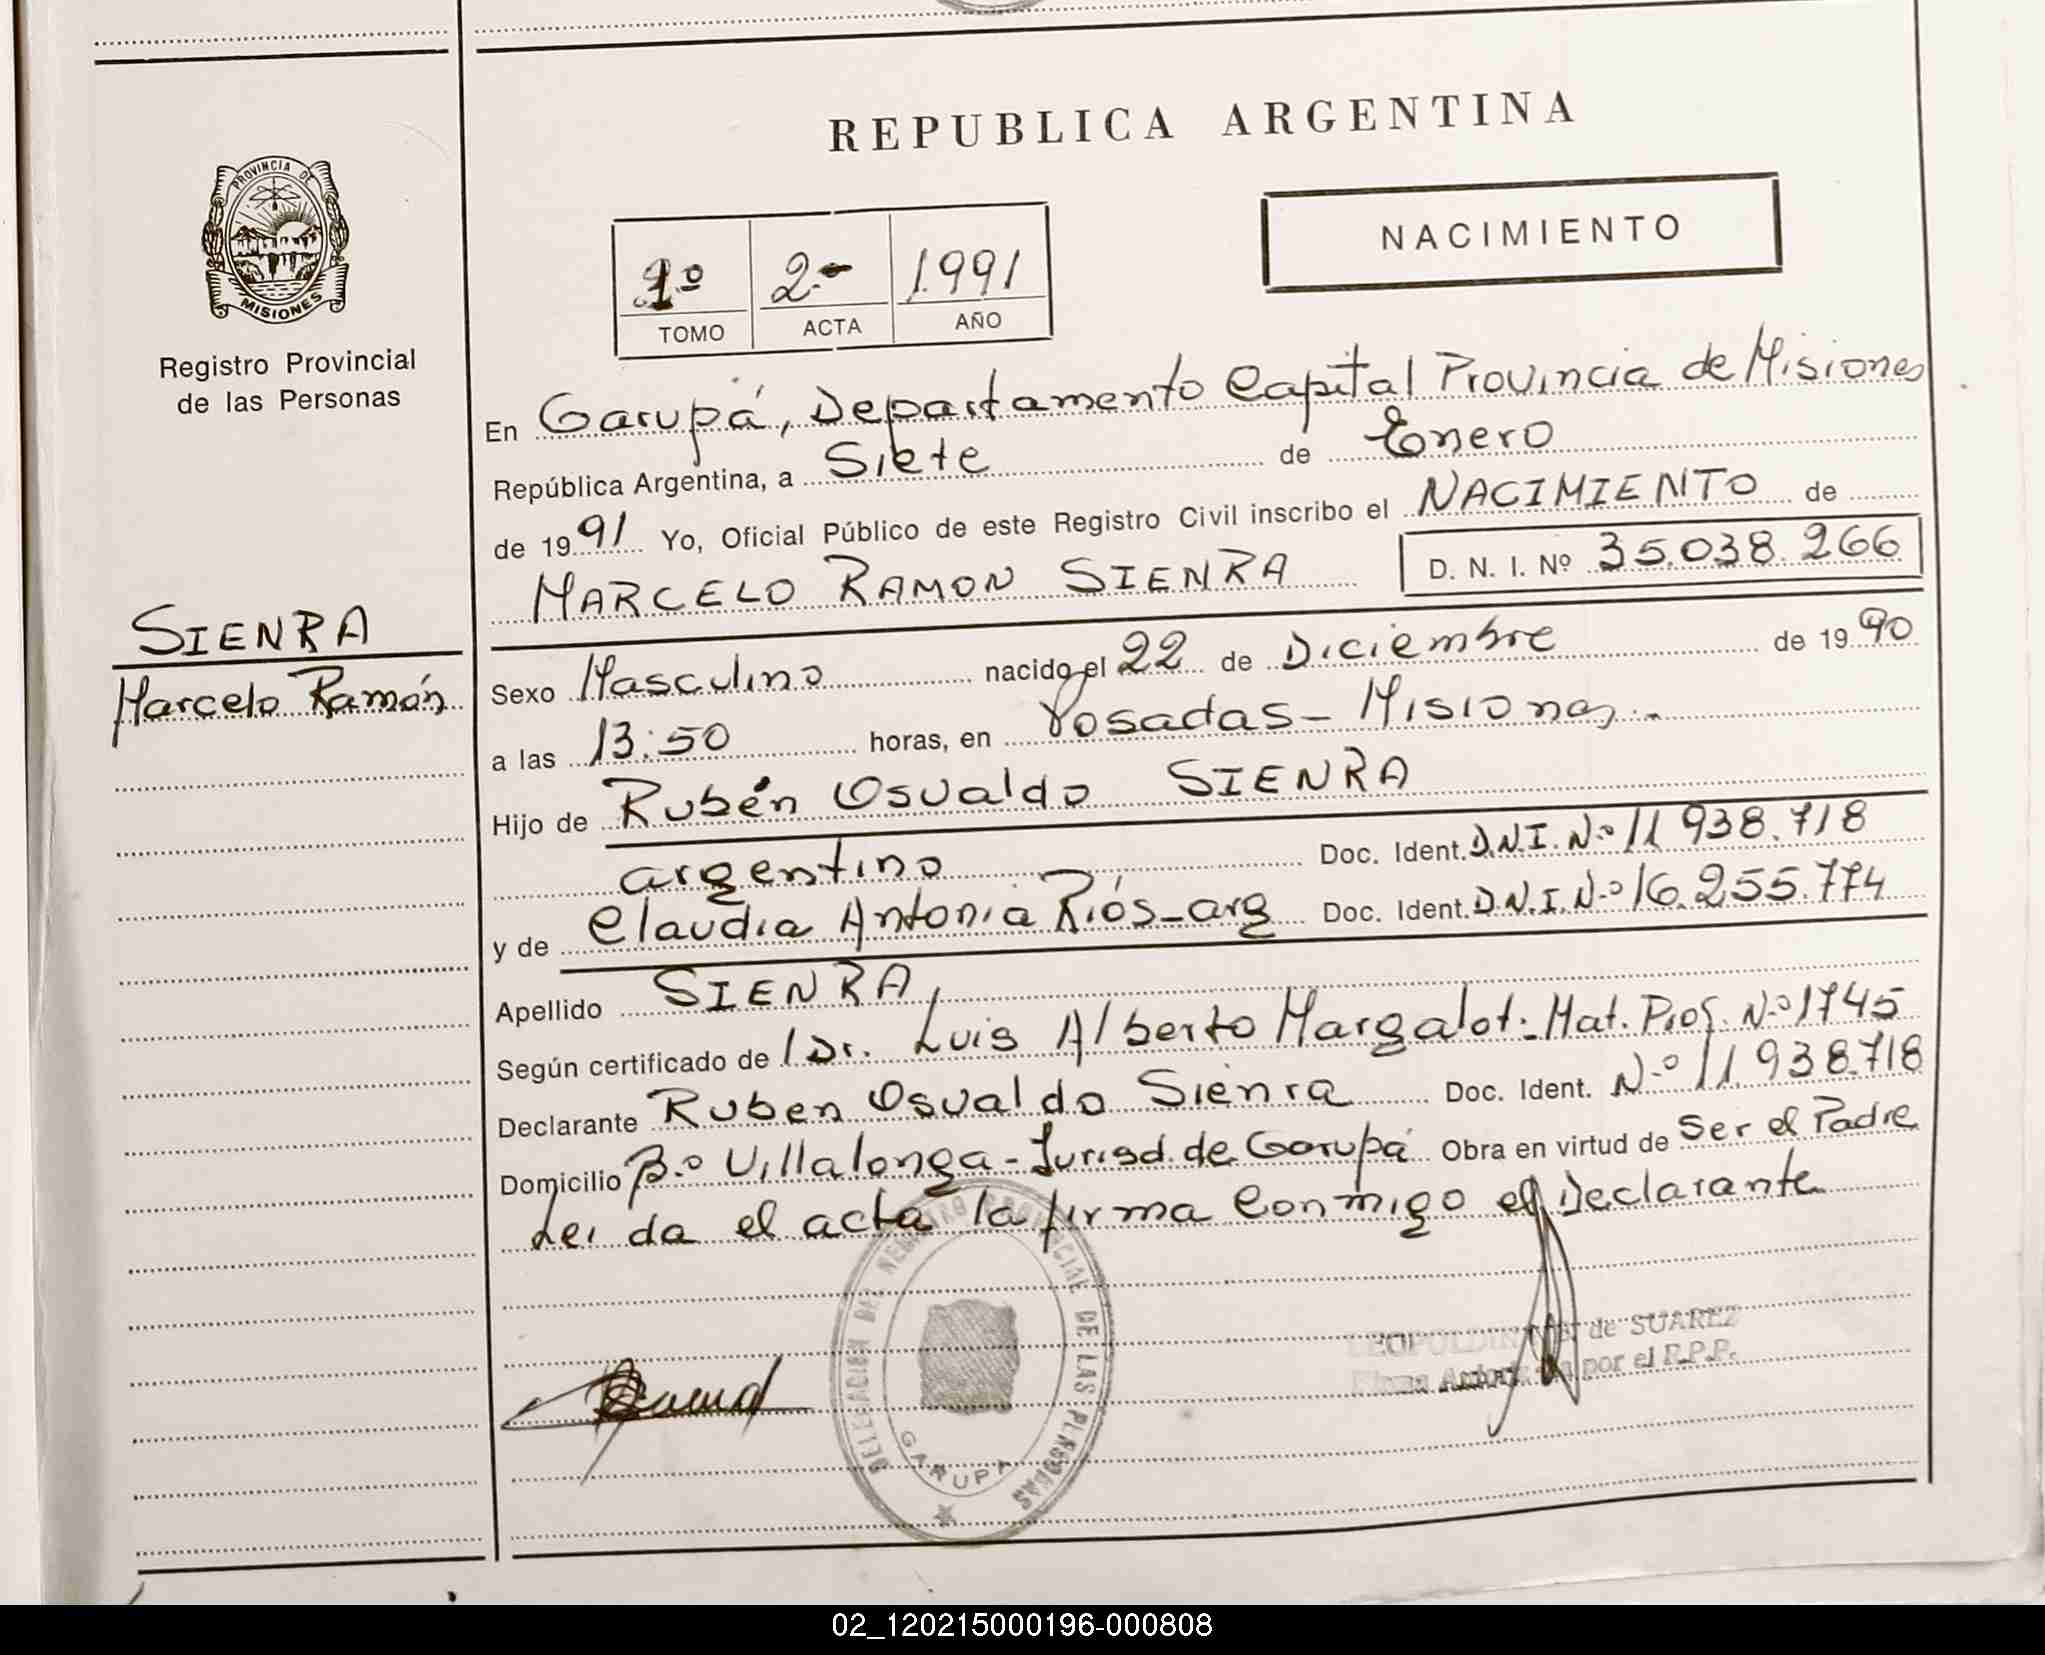 REPUBLICA ARGENTINA
PROVINCIA DE
MISIONES
Registro Provincial
de las Personas
NACIMIENTO
1º 2- 1991
TOMO ACTA AÑO
En Garupá, Departamento Capital Provincia de Misiones
República Argentina, a Siete de Enero
de 1991 Yo, Oficial Público de este Registro Civil inscribo el NACIMIENTO de
MARCELO RAMON SIENRA D. N. I. Nº 35.038.266
SIENRA
Marcelo Ramón
Sexo Masculino nacido el 22 de Diciembre de 1990
a las 13:50 horas, en Posadas - Misiones.-
Hijo de Rubén Osvaldo SIENRA
argentino Doc. Ident. D.N.I. Nº 11.938.718
y de Claudia Antonia Riós - arg Doc. Ident. D.N.I. Nº 16.255.774
Apellido SIENRA
Según certificado de l Dr. Luis Alberto Margalot - Mat. Prof. Nº 1745
Declarante Ruben Osvaldo Sienra Doc. Ident. Nº 11.938.718
Domicilio Bº Villalonga - Jurisd. de Garupá Obra en virtud de Ser el Padre
Lei da el acta la firma Conmigo el Declarante
DELEGACION DEL REGISTRO PROVINCIAL DE LAS PERSONAS
GARUPA
de SUAREZ
por el R.P.P.
02_120215000196-000808